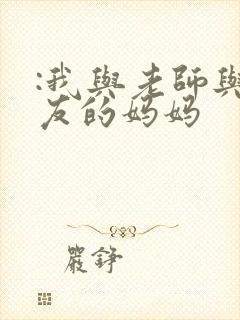 :我與老師與
友的媽媽
嚴錚